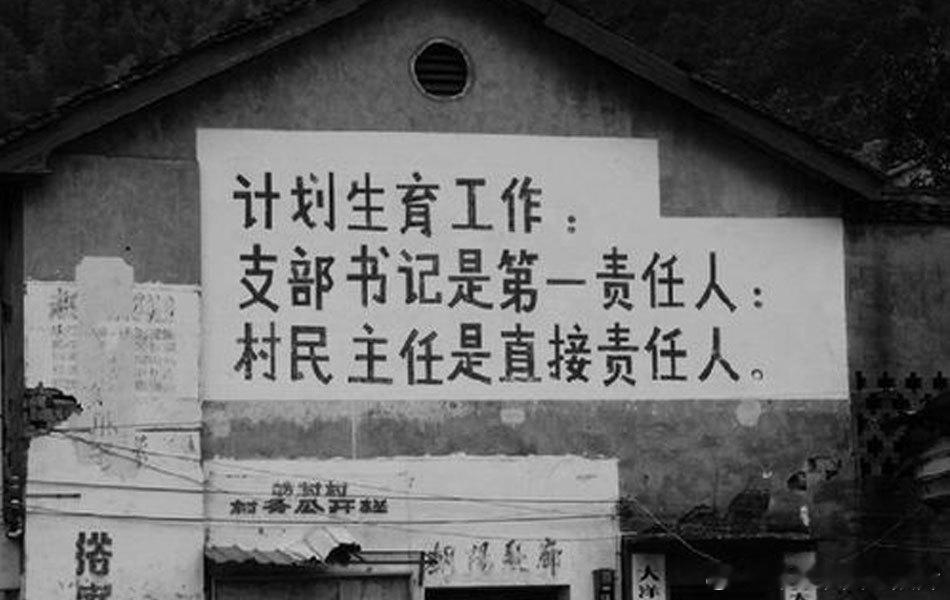 计划生育工作：
支部书记是第一责任人：
村民主任是直接责任人。
村务公开栏
朝阳发廊
搭
人洋